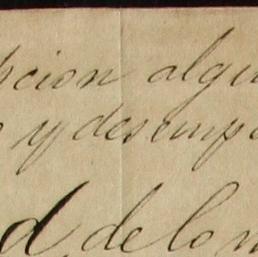 pcion algu
o y desemp
d, de lo m